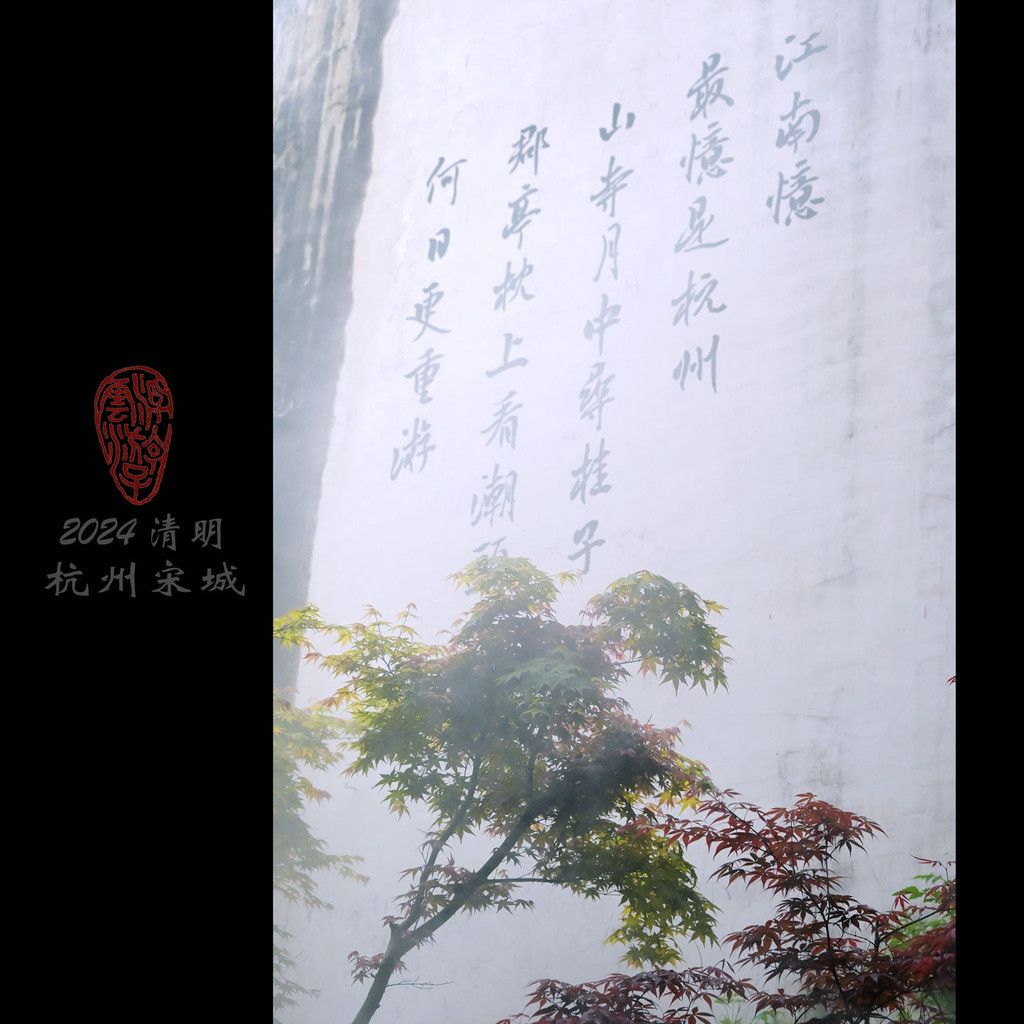 江南憶
最憶是杭州
山寺月中尋桂子
郡亭枕上看潮
何日更重游
2024 清明
杭州宋城